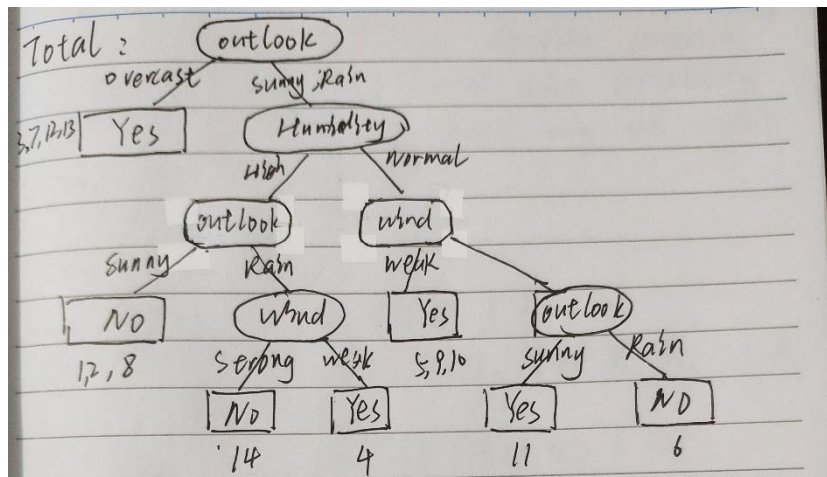 Total : outlook
overcast sunny,Rain
3,7,12,13 Yes Humidity
High Normal
outlook wind
sunny Rain weak
No wind Yes outlook
1,2,8 strong weak 5,9,10 sunny Rain
No Yes Yes NO
14 4 11 6